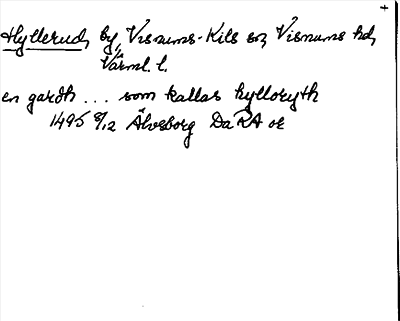 +
Hyllerud, by, Visnums-Kils sn, Visnums hd,
Värml. l.
en gardh ... som kallas hylloryth
1495 8/12 Älvsborg DaRA or